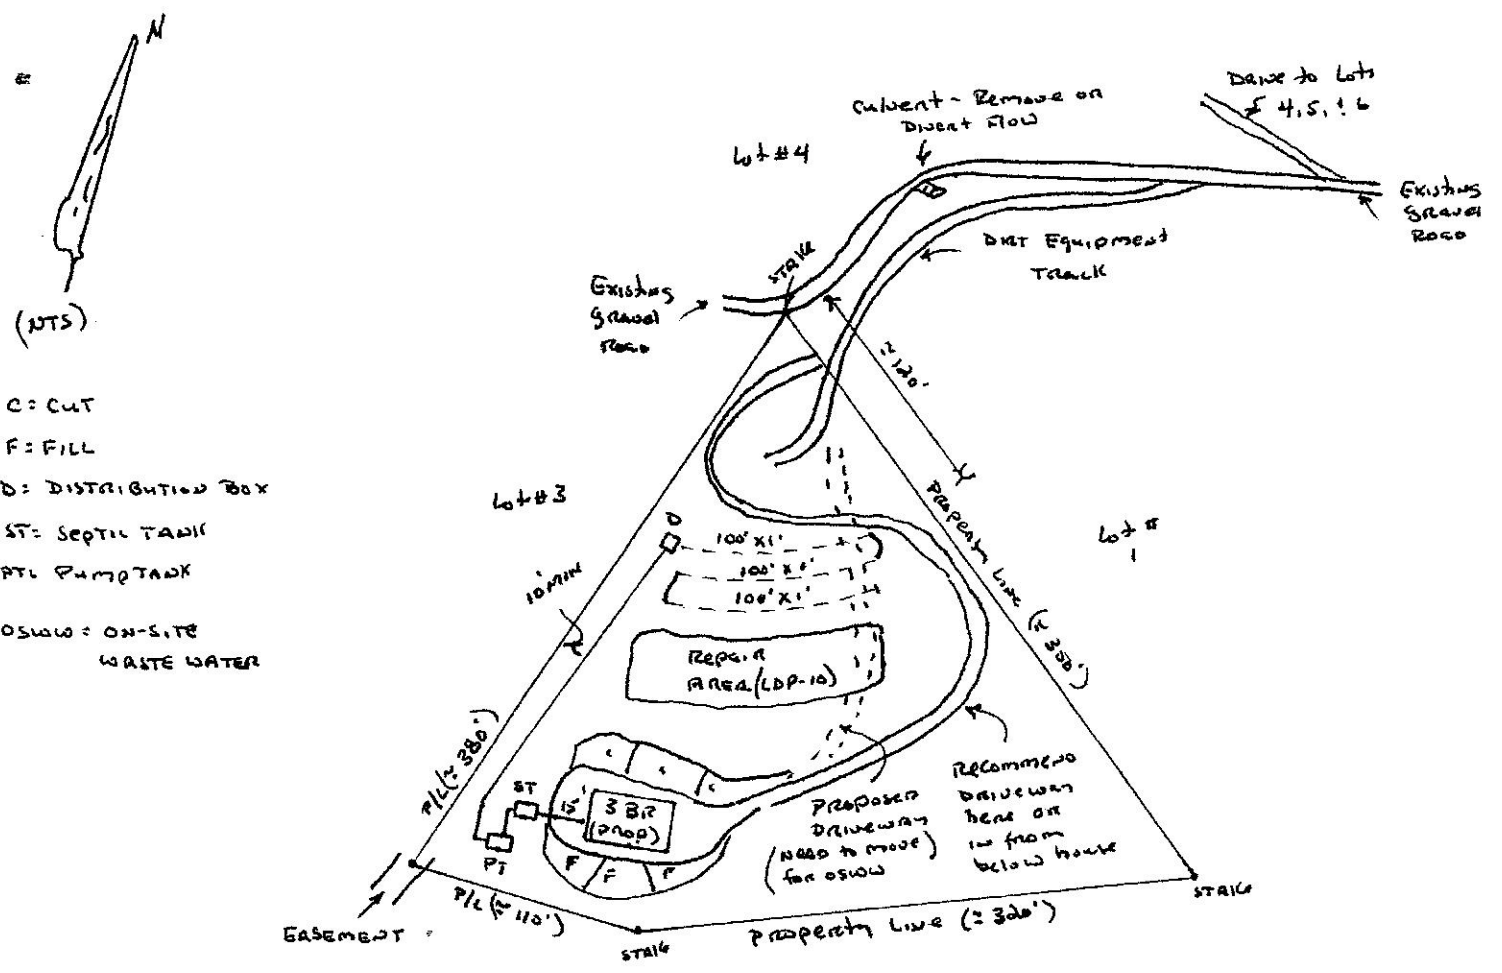 N
(NTS)
C = CUT
F = FILL
D = DISTRIBUTION BOX
ST = SEPTIC TANK
PT = PUMP TANK
OSWW = ON-SITE
WASTE WATER
Lot #4
Culvert - Remove or
Divert Flow
Drive to Lots
4, 5, & 6
Existing
Gravel
Road
Dirt Equipment
Track
STAKE
Existing
Gravel
Road
≈ 120'
Lot #3
Property Line (≈ 350')
Lot #
1
D
100' x 1'
100' x 1'
100' x 1'
10' MIN
Repair
AREA (LDP-10)
P/L (≈ 380')
C
C
C
ST
15'
3 BR
(PROP)
PT
F
F
F
Proposed
Driveway
(Need to move)
for OSWW
Recommend
Driveway
here or
in from
below house
P/L (≈ 110')
EASEMENT
STAKE
Property Line (≈ 320')
STAKE